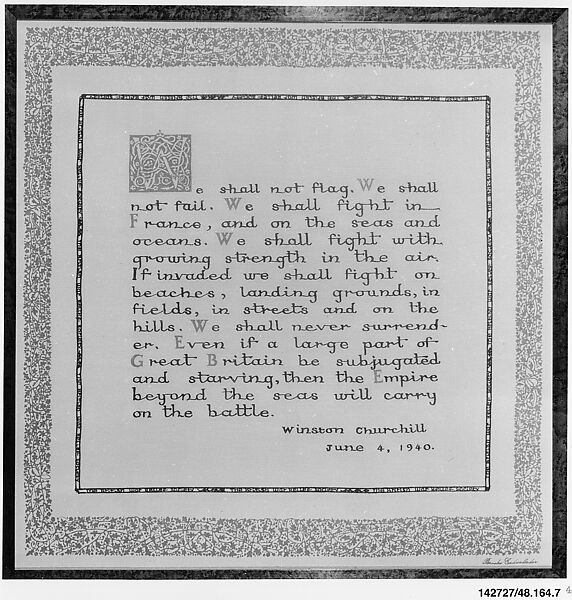 We shall not flag. We shall
not fail. We shall fight in
France, and on the seas and
oceans. We shall fight with
growing strength in the air.
If invaded we shall fight on
beaches, landing grounds, in
fields, in streets and on the
hills. We shall never surrend-
er. Even if a large part of
Great Britain be subjugated
and starving, then the Empire
beyond the seas will carry
on the battle.
Winston Churchill
June 4, 1940.
142727/48.164.7